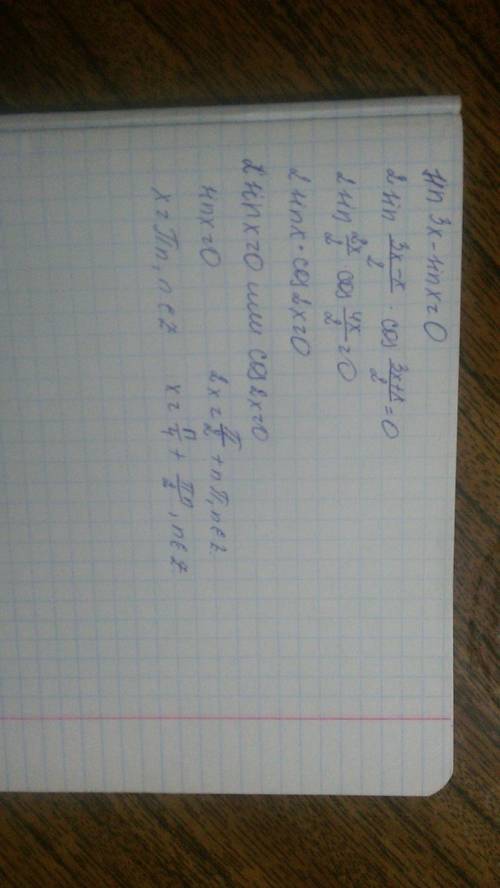 sin 3x - sin x = 0
2 sin (3x-x)/2 · cos (3x+x)/2 = 0
2 sin 2x/2 cos 4x/2 = 0
2 sin x · cos 2x = 0
2 sin x = 0 или cos 2x = 0
sin x = 0 2x = π/2 + nπ, n∈z
x = πn, n∈z x = π/4 + πn/2, n∈z